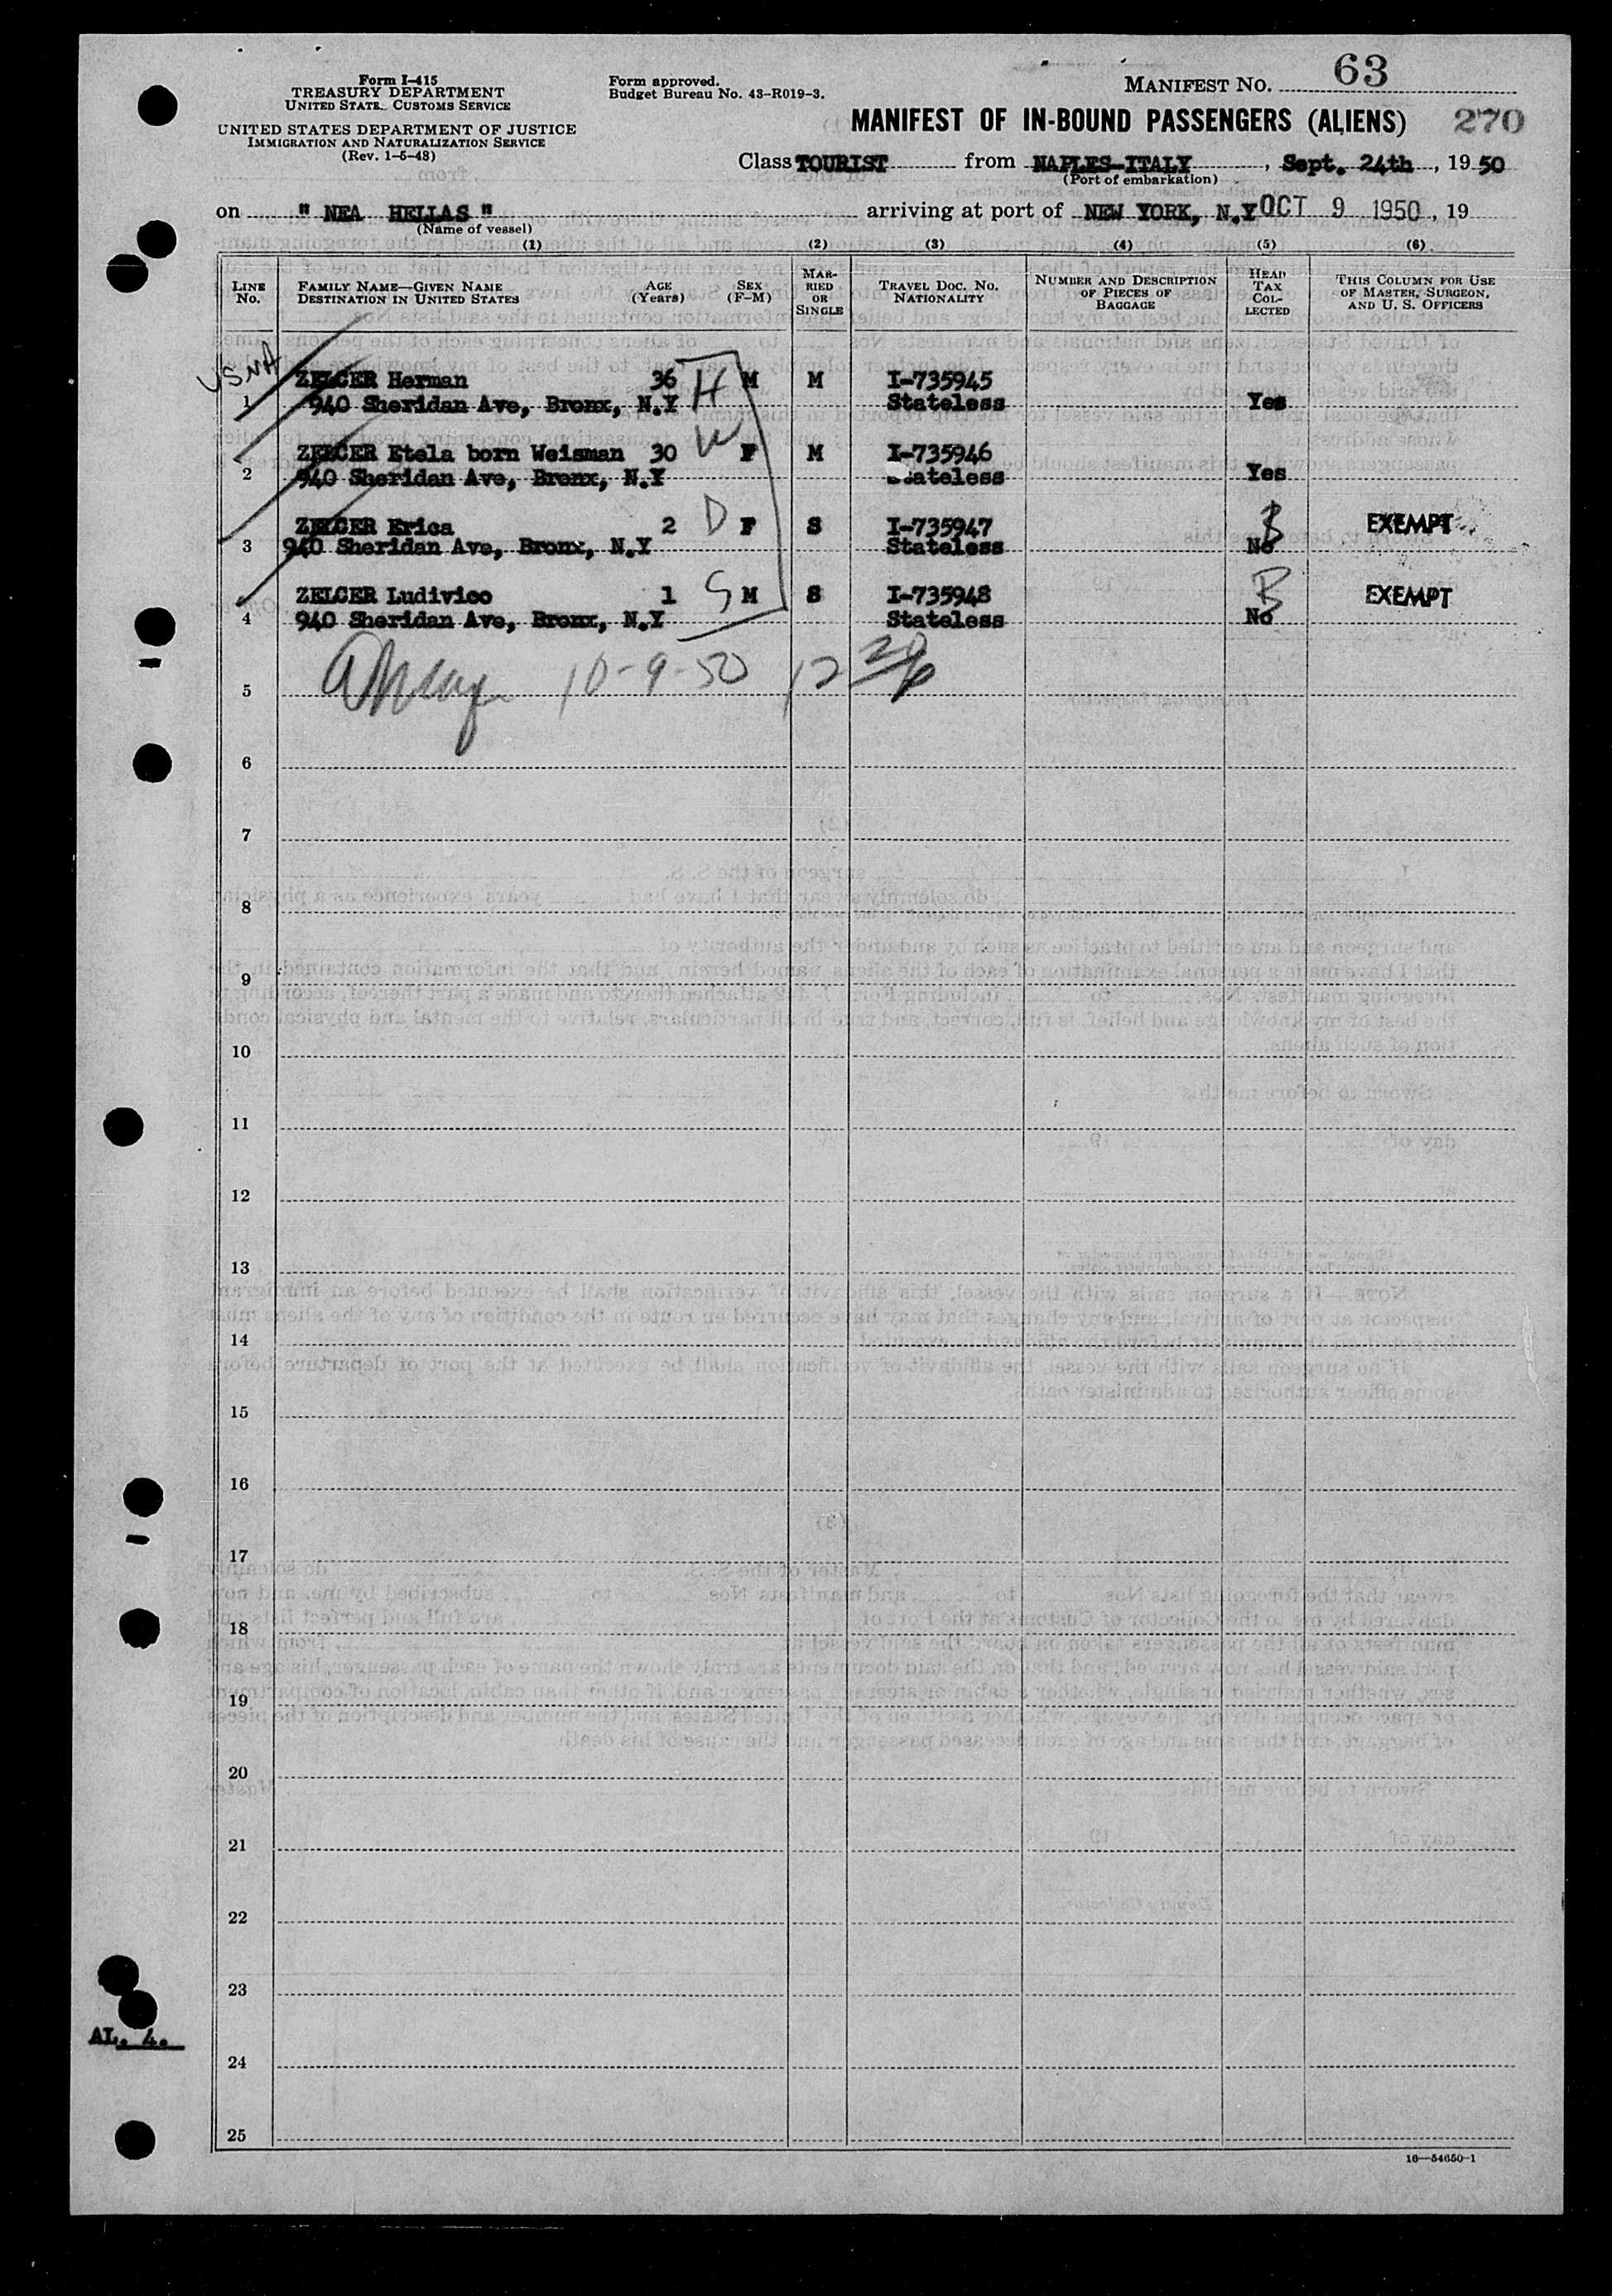 Form I-415
TREASURY DEPARTMENT
UNITED STATE. CUSTOMS SERVICE
UNITED STATES DEPARTMENT OF JUSTICE
IMMIGRATION AND NATURALIZATION SERVICE
(Rev. 1-5-48)
Form approved.
Budget Bureau No. 43-R019-3.
MANIFEST NO. 63
MANIFEST OF IN-BOUND PASSENGERS (ALIENS) 270
Class TOURIST from NAPLES-ITALY, Sept. 24th, 1950
(Port of embarkation)
on " NEA HELLAS " arriving at port of NEW YORK, N.Y OCT 9 1950, 19
(Name of vessel)
(1) (2) (3) (4) (5) (6)
LINE No. FAMILY NAME—GIVEN NAME DESTINATION IN UNITED STATES AGE (Years) SEX (F-M) MARRIED OR SINGLE TRAVEL DOC. NO. NATIONALITY NUMBER AND DESCRIPTION OF PIECES OF BAGGAGE HEAD TAX COLLECTED THIS COLUMN FOR USE OF MASTER, SURGEON, AND U. S. OFFICERS
USNA
ZELCER Herman 36 H M M I-735945
1 940 Sheridan Ave, Bronx, N.Y Stateless Yes
ZELCER Etela born Weisman 30 W F M I-735946
2 940 Sheridan Ave, Bronx, N.Y Stateless Yes
ZELCER Erica 2 D F S I-735947 B EXEMPT
3 940 Sheridan Ave, Bronx, N.Y Stateless No
ZELCER Ludivico 1 S M S I-735948 B EXEMPT
4 940 Sheridan Ave, Bronx, N.Y Stateless No
5 10-9-50
6
7
8
9
10
11
12
13
14
15
16
17
18
19
20
21
22
23
AL. 4.
24
25
16—54650-1